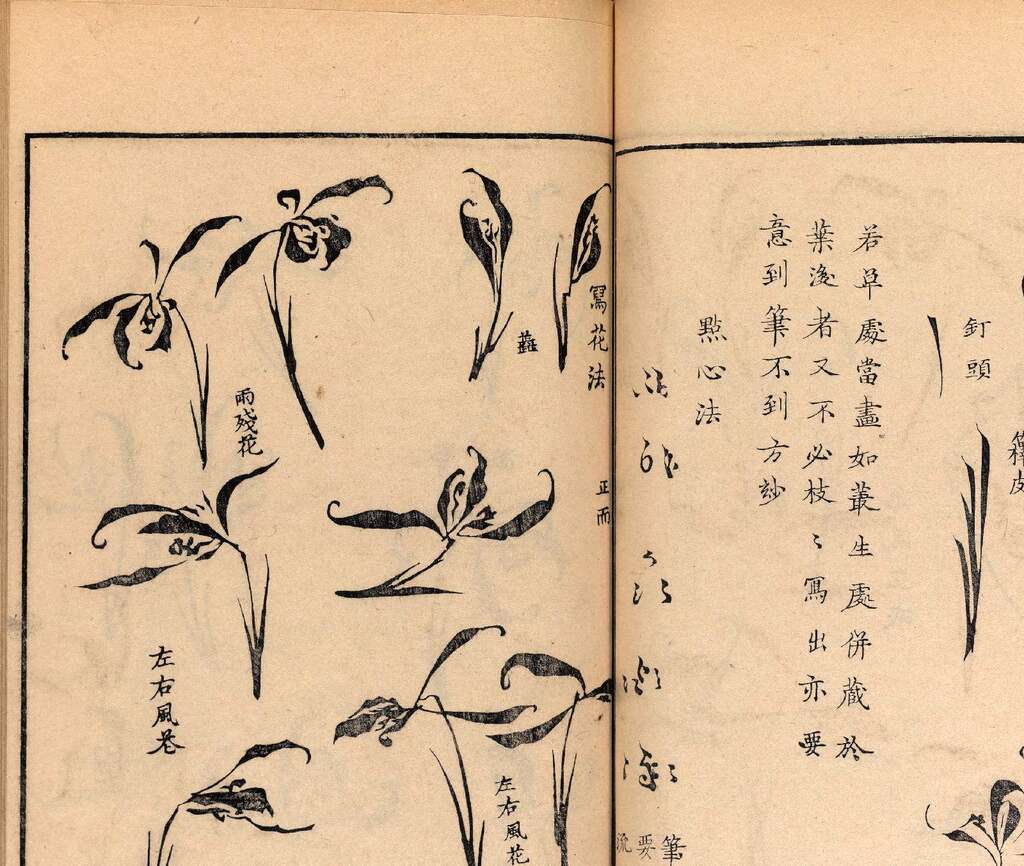 釘頭
籜皮
若卓處當畫如叢生處併藏於
葉後者又不必枝〻寫出亦要
意到筆不到方玅
點心法
筆
要
流
寫花法
蕋
正而
雨殘花
左右風卷
左右風花